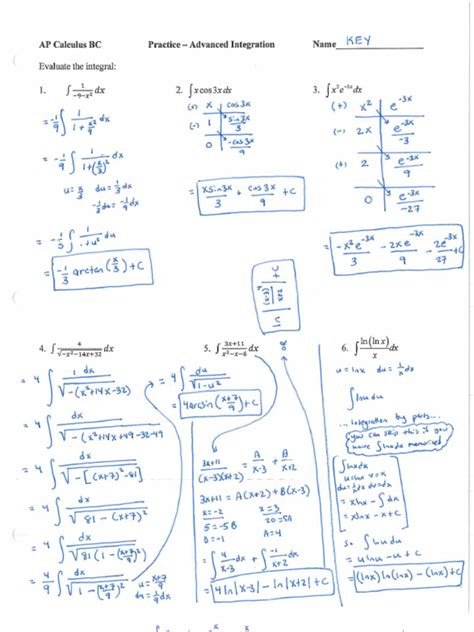 AP Calculus BC Practice – Advanced Integration Name KEY
Evaluate the integral:
1. ∫ 1/(-9-x²) dx
= -1/9 ∫ 1/(1+x²/9) dx
= -1/9 ∫ 1/(1+(x/3)²) dx
u = x/3 du = 1/3 dx
-1/3 du = -1/9 dx
= -1/3 ∫ 1/(1+u²) du
= -1/3 arctan(x/3) + C
2. ∫ x cos 3x dx
(+) x cos 3x
(-) 1 sin 3x/3
0 -cos 3x/9
x sin 3x/3 + cos 3x/9 + C
3. ∫ x² e^(-3x) dx
(+) x² e^(-3x)
(-) 2x e^(-3x)/-3
(+) 2 e^(-3x)/9
0 e^(-3x)/-27
-x²e^(-3x)/3 - 2xe^(-3x)/9 - 2e^(-3x)/27 + C
4. ∫ 4/√(-x²-14x+32) dx
= 4 ∫ dx/√(-(x²+14x-32))
= 4 ∫ dx/√(-(x²+14x+49-32-49))
= 4 ∫ dx/√(-[(x+7)²-81])
= 4 ∫ dx/√(81-(x+7)²)
= 4 ∫ dx/√(81(1-(x+7)²/9²))
= 4/9 ∫ dx/√(1-((x+7)/9)²) u = (x+7)/9
du = 1/9 dx
= 4 ∫ du/√(1-u²)
= 4 arcsin((x+7)/9) + C
5. ∫ (3x+11)/(x²-x-6) dx
(3x+11)/((x-3)(x+2)) = A/(x-3) + B/(x+2)
3x+11 = A(x+2) + B(x-3)
x = -2 x = 3
5 = -5B 20 = 5A
B = -1 A = 4
= ∫ 4/(x-3) dx + ∫ -1/(x+2) dx
= 4 ln|x-3| - ln|x+2| + C
6. ∫ ln(ln x)/x dx
u = ln x du = 1/x dx
∫ ln u du
... integration by parts...
(you can skip this if you
have ∫ ln x dx memorized
∫ ln x dx
u = ln x v = x
du = 1/x dx dv = dx
= x ln x - ∫ dx
= x ln x - x + C
so ∫ ln u du
= u ln u - u + C
= (ln x) ln(ln x) - (ln x) + C